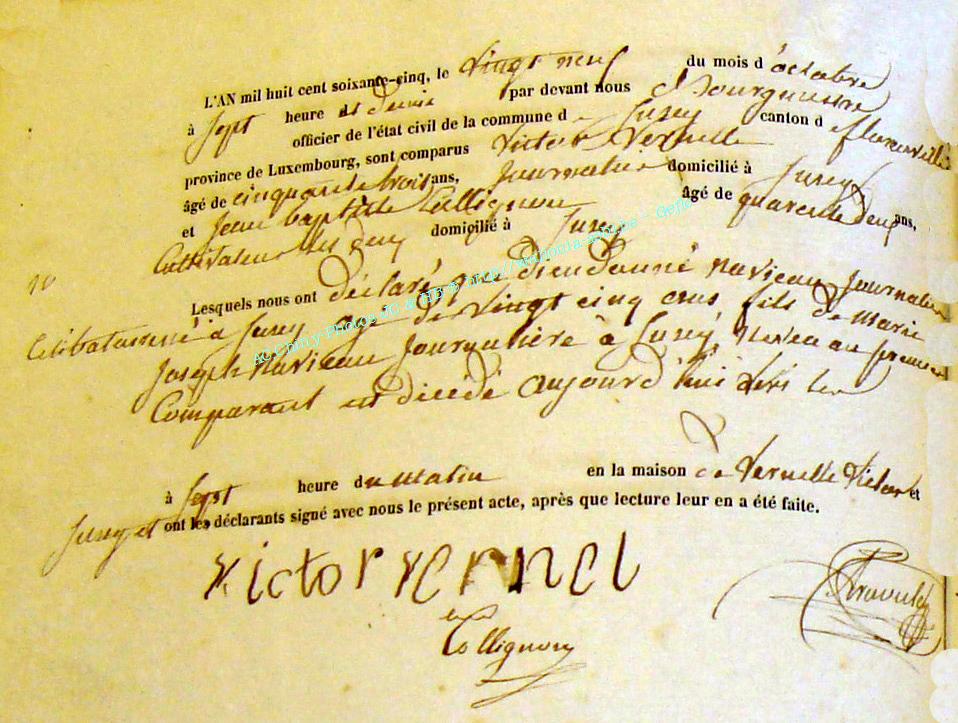 L'AN mil huit cent soixante-cinq, le vingt neuf du mois d'octobre
à sept heure et demie par devant nous Bourgmestre
officier de l'état civil de la commune de Jusey canton de florenville
province de Luxembourg, sont comparus Victor Vernelle
âgé de cinquante trois ans, Journalier domicilié à Jusey
et Jean baptiste Collignon âgé de quarente deux ans,
Cultivateur les deux domicilié à Jusey
Lesquels nous ont déclaré que Dieudonné Naviaux Journalier
Célibataire né à Jusey agé de vingt cinq ans fils de Marie
Joseph Naviaux Journalière à Jusey, Neveu au premier
Comparant est décédé aujourd'hui
à sept heure du matin en la maison de Vernelle Victor et
Jusey et ont les déclarants signé avec nous le présent acte, après que lecture leur en a été faite.
Victor Vernel
Collignon